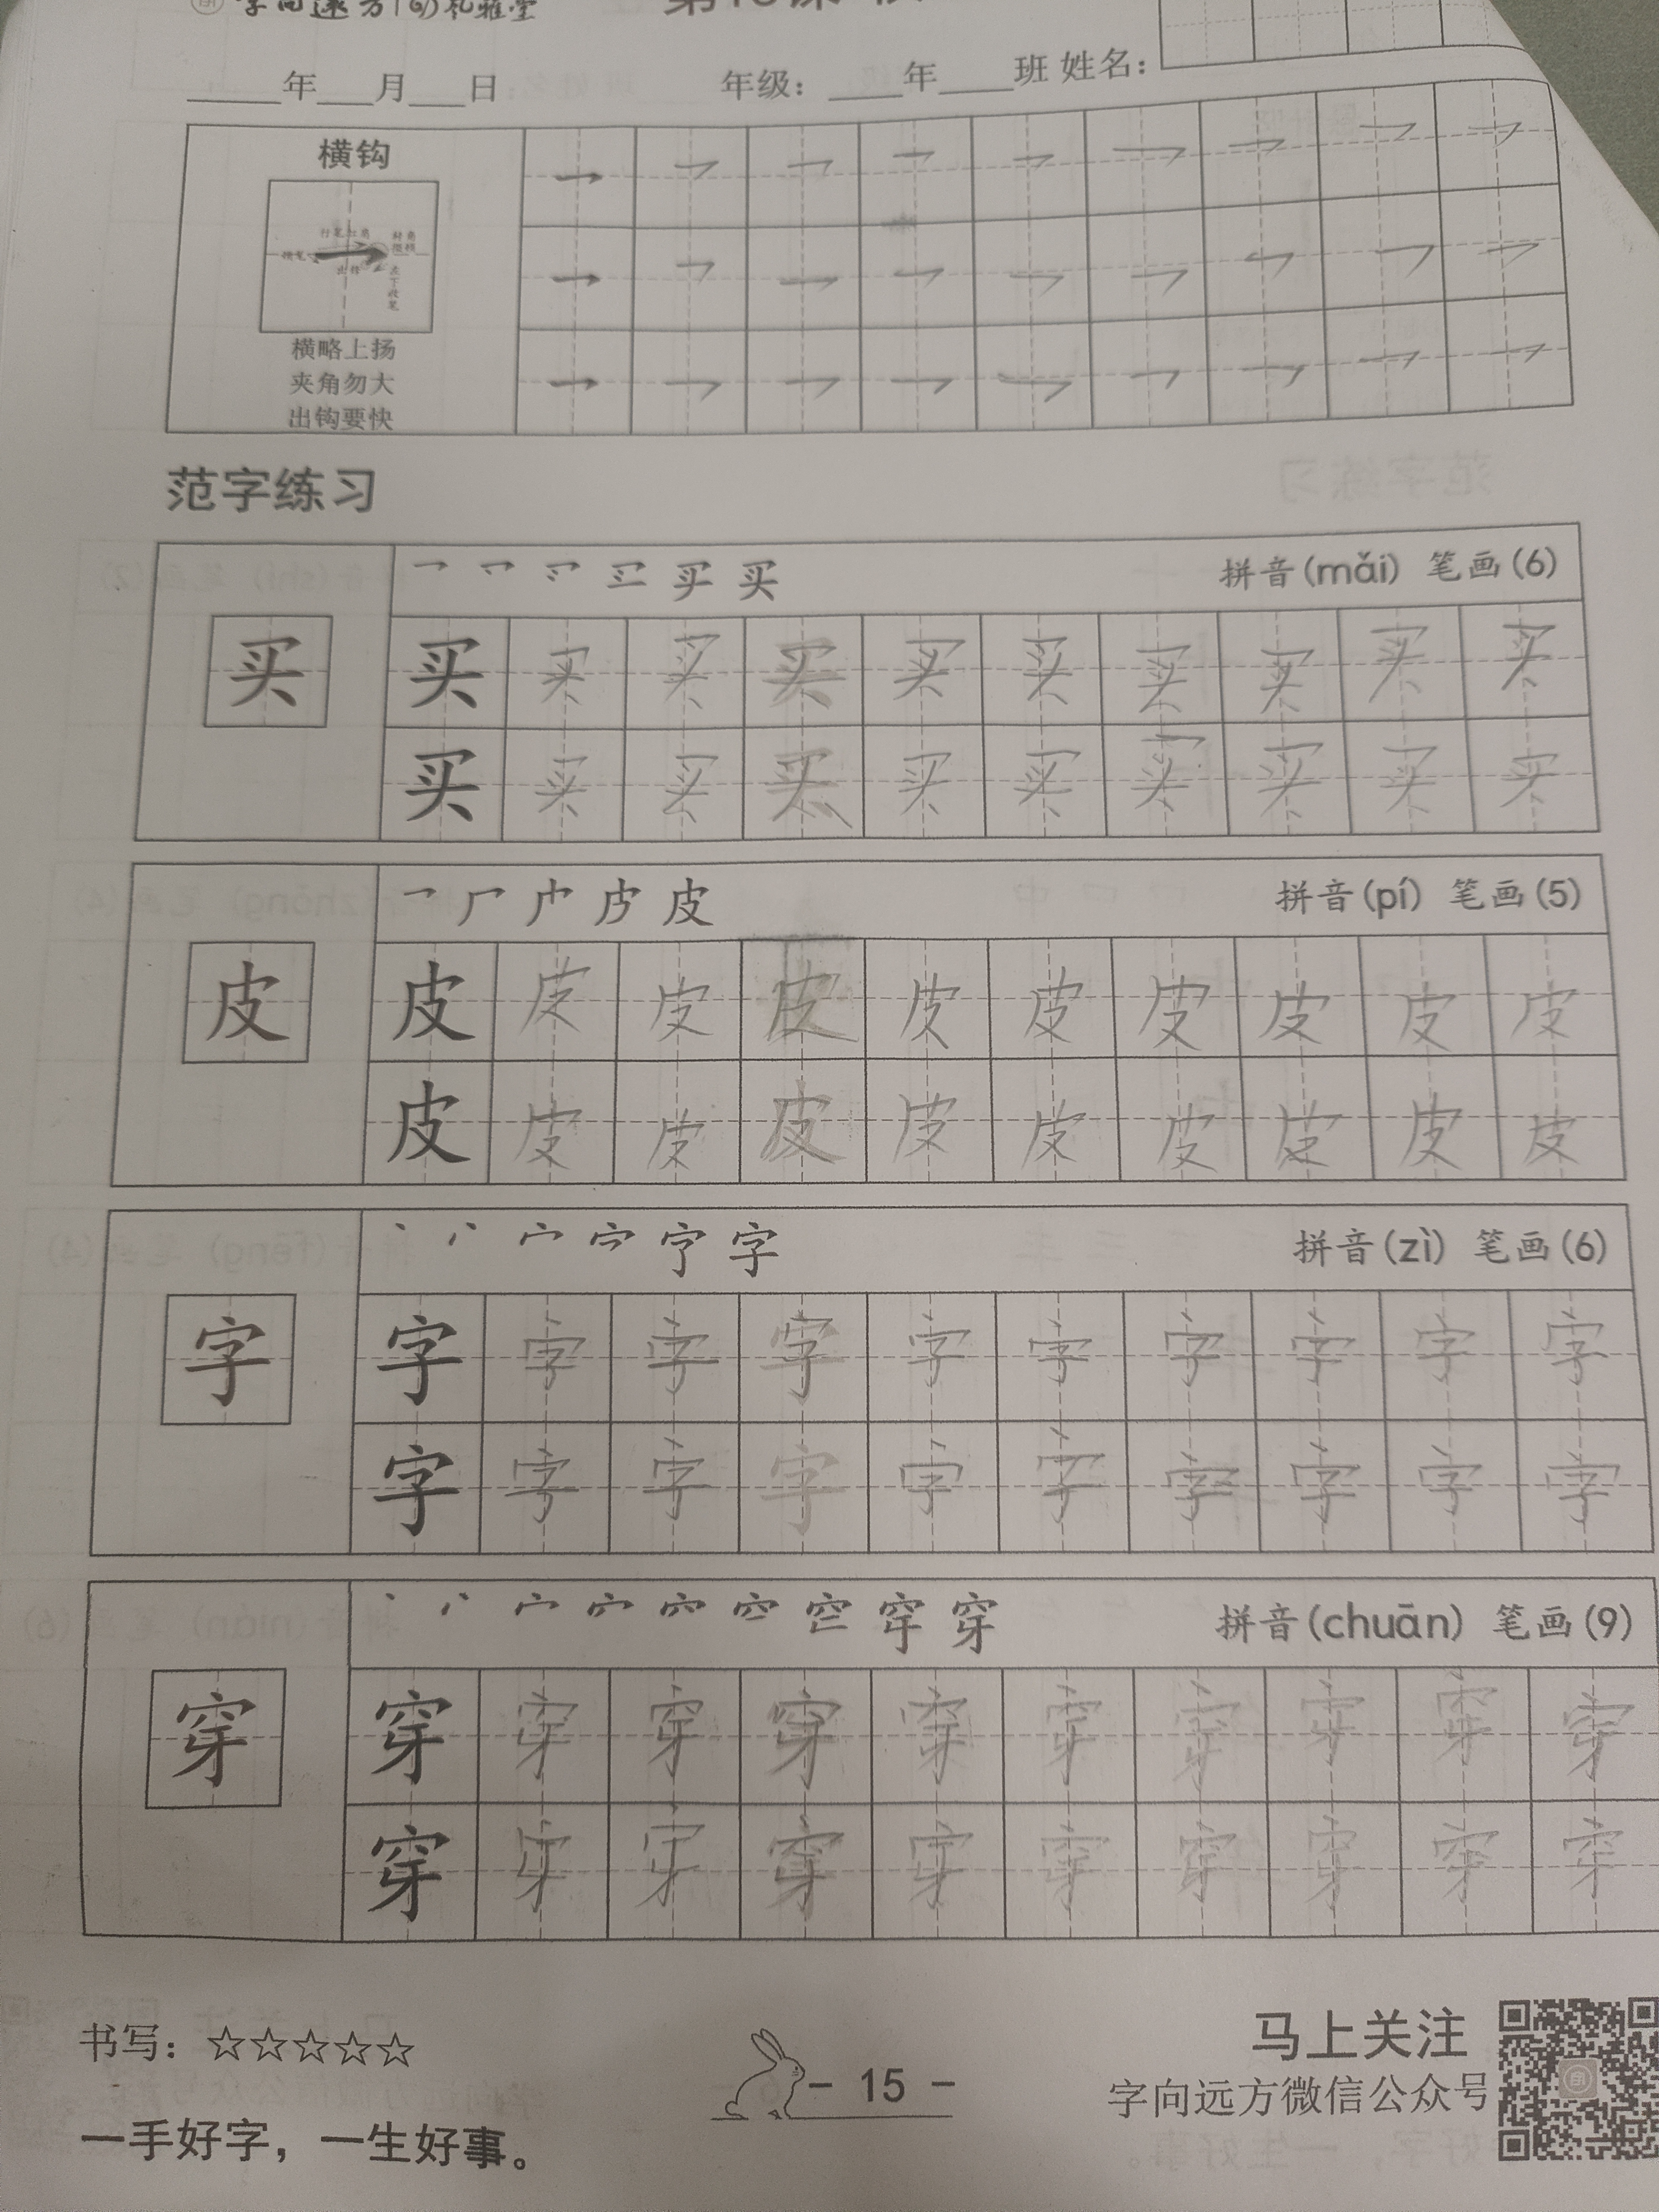 字向远方 礼雅堂
年 月 日 年级： 年 班 姓名：
横钩
横略上扬
夹角勿大
出钩要快
范字练习
拼音(mǎi) 笔画(6)
买 买 买 买 买 买 买 买 买 买 买
买 买 买 买 买 买 买 买 买 买
拼音(pí) 笔画(5)
皮 皮 皮 皮 皮 皮 皮 皮 皮 皮 皮
皮 皮 皮 皮 皮 皮 皮 皮 皮 皮
拼音(zì) 笔画(6)
字 字 字 字 字 字 字 字 字 字 字
字 字 字 字 字 字 字 字 字 字
拼音(chuān) 笔画(9)
穿 穿 穿 穿 穿 穿 穿 穿 穿 穿 穿
穿 穿 穿 穿 穿 穿 穿 穿 穿 穿
书写：☆☆☆☆☆
一手好字，一生好事。
- 15 -
马上关注
字向远方微信公众号